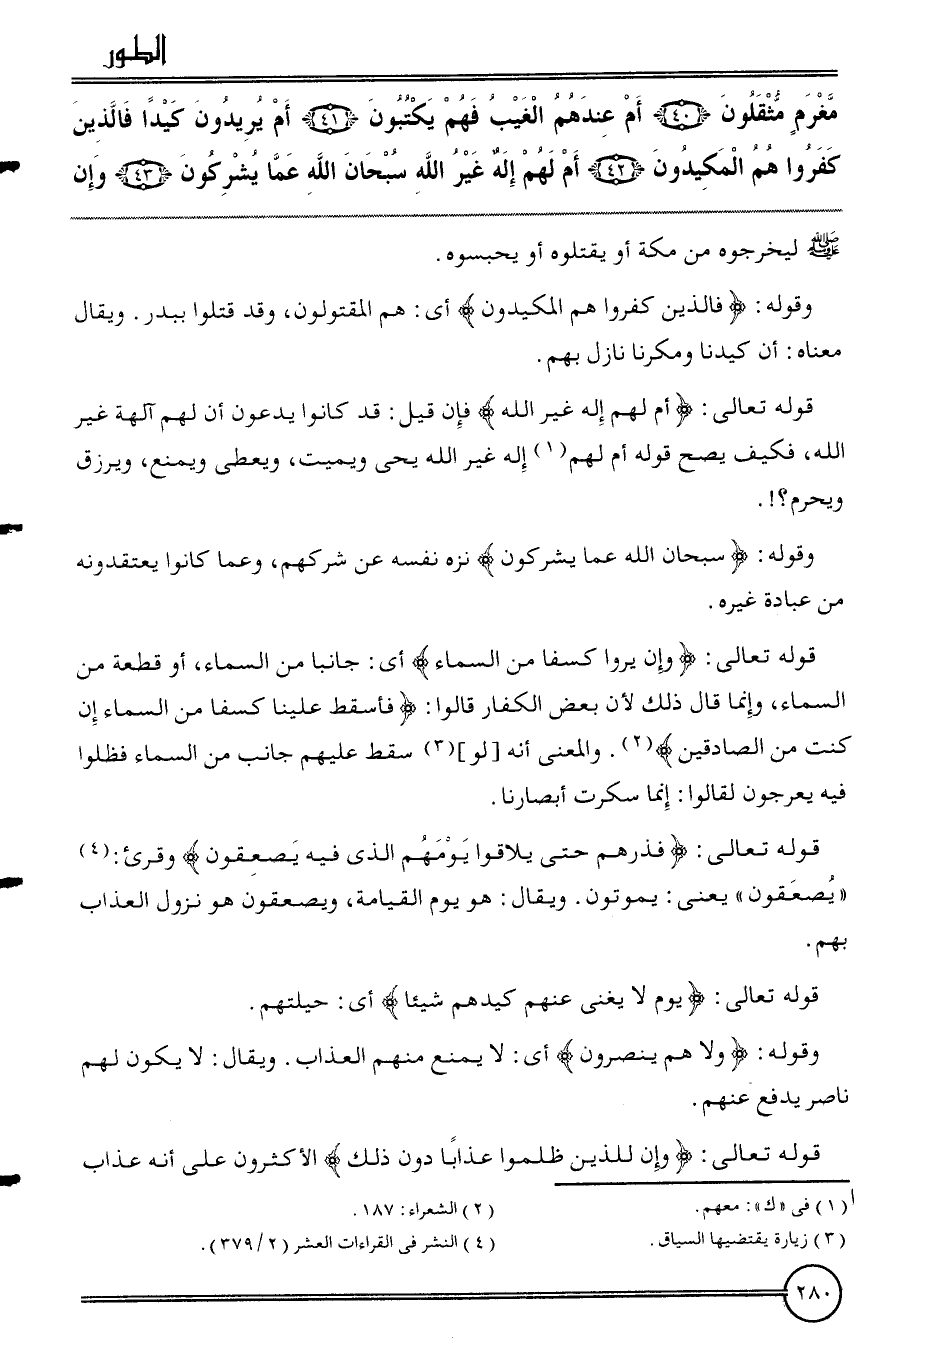 الطور
مَّغْرَمٍ مُّثْقَلُونَ ﴿٤٠﴾ أَمْ عِندَهُمُ الْغَيْبُ فَهُمْ يَكْتُبُونَ ﴿٤١﴾ أَمْ يُرِيدُونَ كَيْدًا فَالَّذِينَ
كَفَرُوا هُمُ الْمَكِيدُونَ ﴿٤٢﴾ أَمْ لَهُمْ إِلَهٌ غَيْرُ اللَّهِ سُبْحَانَ اللَّهِ عَمَّا يُشْرِكُونَ ﴿٤٣﴾ وَإِن
ﷺ ليخرجوه من مكة أو يقتلوه أو يحبسوه .
وقوله : ﴿ فالذين كفروا هم المكيدون ﴾ أى : هم المقتولون، وقد قتلوا ببدر . ويقال
معناه : أن كيدنا ومكرنا نازل بهم .
قوله تعالى : ﴿ أم لهم إله غير الله ﴾ فإن قيل : قد كانوا يدعون أن لهم آلهة غير
الله، فكيف يصح قوله أم لهم(١) إله غير الله يحى ويميت، ويعطى ويمنع، ويرزق
ويحرم؟! .
وقوله : ﴿ سبحان الله عما يشركون ﴾ نزه نفسه عن شركهم، وعما كانوا يعتقدونه
من عبادة غيره .
قوله تعالى : ﴿ وإن يروا كسفا من السماء ﴾ أى : جانبا من السماء، أو قطعة من
السماء، وإنما قال ذلك لأن بعض الكفار قالوا : ﴿ فأسقط علينا كسفا من السماء إن
كنت من الصادقين ﴾(٢) . والمعنى أنه [ لو ](٣) سقط عليهم جانب من السماء فظلوا
فيه يعرجون لقالوا : إنما سكرت أبصارنا .
قوله تعالى : ﴿ فذرهم حتى يلاقوا يَوْمَهُم الذى فيه يَصعِقون ﴾ وقرئ :(٤)
«يُصعَقون» يعنى : يموتون . ويقال : هو يوم القيامة، ويصعقون هو نزول العذاب
بهم .
قوله تعالى : ﴿ يوم لا يغنى عنهم كيدهم شيئا ﴾ أى : حيلتهم .
وقوله : ﴿ ولا هم ينصرون ﴾ أى : لا يمنع منهم العذاب . ويقال : لا يكون لهم
ناصر يدفع عنهم .
قوله تعالى : ﴿ وإن للذين ظلموا عذابًا دون ذلك ﴾ الأكثرون على أنه عذاب
(١) فى «ك» : معهم . (٢) الشعراء : ١٨٧ .
(٣) زيارة يقتضيها السياق . (٤) النشر فى القراءات العشر (٢/ ٣٧٩) .
٢٨٠